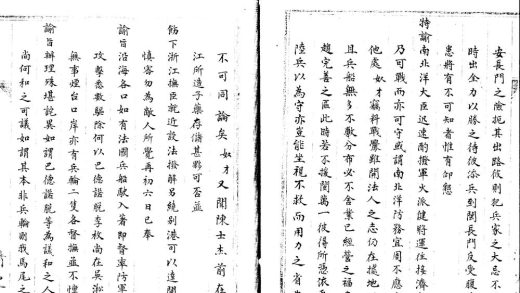 安長門之險扼其出路彼則犯兵家之大忌不
時出全力以勝之待彼添兵到閩長門反受腹
患將有不可知者惟有仰懇
特諭南北洋大臣迅速酌撥軍火派健將運往接濟
乃可戰而亦可守或謂南北洋防務宜周不應
他處奴才竊料戰釁雖開法人之志仍在據地
且兵船無多不敷分布必不舍業已經營之福
趨完善之區此時若不援閩萬一彼得所憑依
陸兵以為守亦豈能坐視不救而用力之省
不可同論矣奴才又聞陳士杰前在
江所造子藥存儲甚夥可否並
飭下浙江撫臣就近設法撥解另繞別港可以達閩
慎密勿為敵人所覺再初六日已奉
諭旨沿海各口如有法國兵船駛入著即督率防軍
攻擊悉數驅除何以巴德諾脫李梅尚在吳淞
無事煙台口岸亦有兵輪二隻各督撫並不懍
諭旨辦理殊堪詫異如謂巴德諾脫等為議和之人
尚何和之可議如謂其本非兵輪則我馬尾之